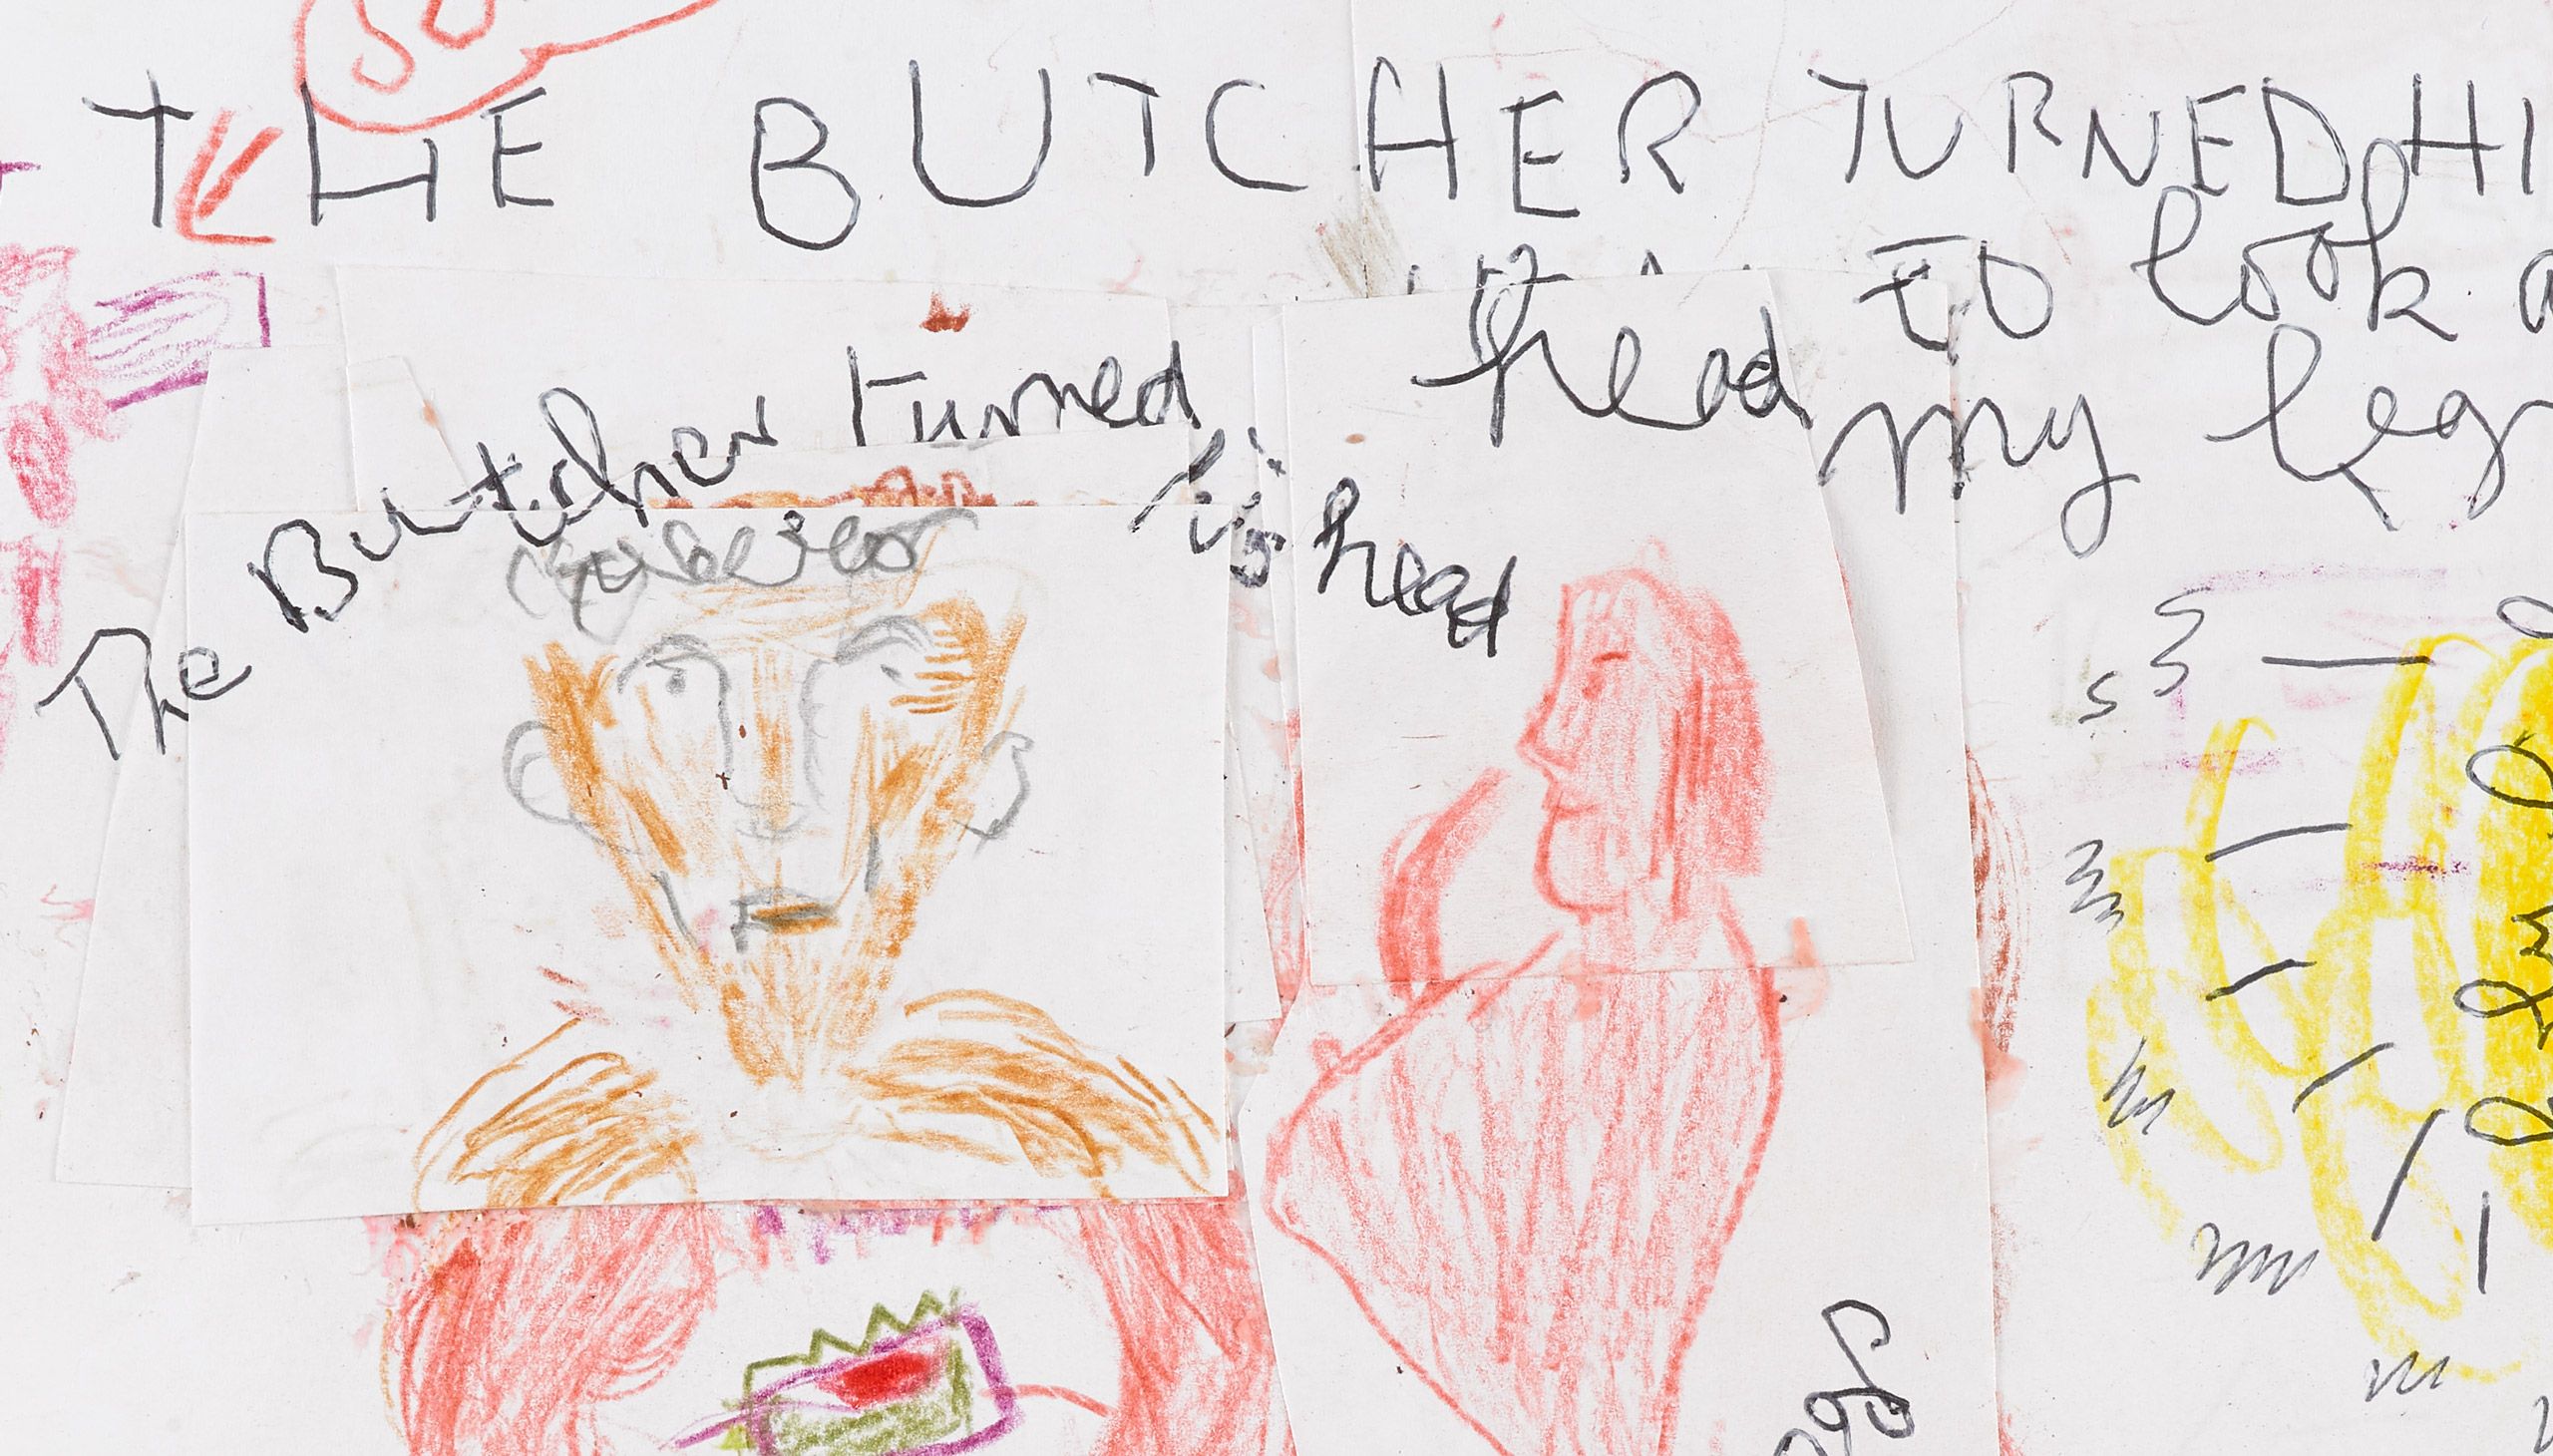 THE BUTCHER TURNED HI
head to look a
my leg
The Butcher turned his head